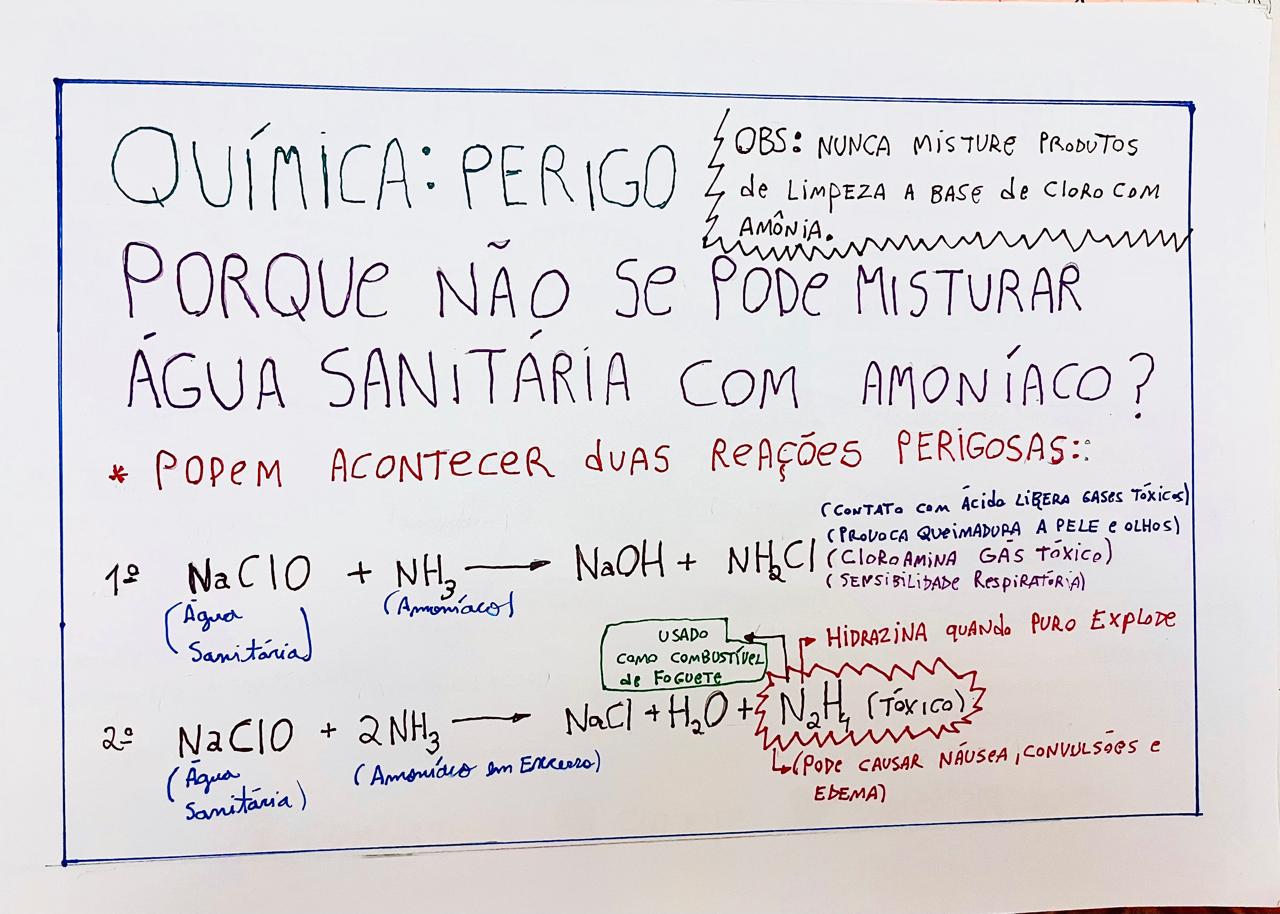 QUÍMICA: PERIGO
OBS: NUNCA MISTURE PRODUTOS
de LIMPEZA A BASE de CLORO COM
AMÔNIA.
PORQUE NÃO SE PODE MISTURAR
ÁGUA SANITÁRIA COM AMONÍACO?
* PODEM ACONTECER dUAS REAÇÕES PERIGOSAS::
(CONTATO COM ÁCIDO LIBERA GASES TÓXICOS)
(PROVOCA QUEIMADURA A PELE e OLHOS)
1º NaClO + NH₃ → NaOH + NH₂Cl (CLOROAMINA GÁS TÓXICO)
(SENSIBILIDADE RESPIRATÓRIA)
(Água
Sanitária)
(Amoníaco)
HIDRAZINA QUANDO PURO EXPLODE
USADO
COMO COMBUSTÍVEL
de FOGUETE
2º NaClO + 2NH₃ → NaCl + H₂O + N₂H₄ (TÓXICO)
(Água
Sanitária)
(Amoníaco em Excesso)
(PODE CAUSAR NÁUSEA, CONVULSÕES e
EDEMA)